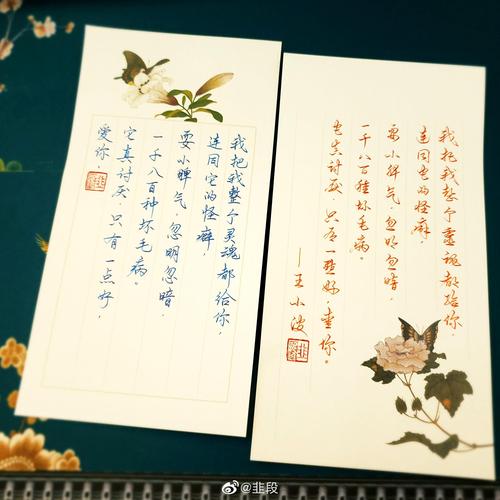 我把我整个灵魂都给你，
连同它的怪癖，
耍小脾气，忽明忽暗，
一千八百种坏毛病。
它真讨厌，只有一点好，
爱你。
我把我整个灵魂都给你，
连同它的怪癖，
耍小脾气，忽明忽暗，
一千八百种坏毛病。
它真讨厌，只有一点好，爱你。
——王小波
@韭段